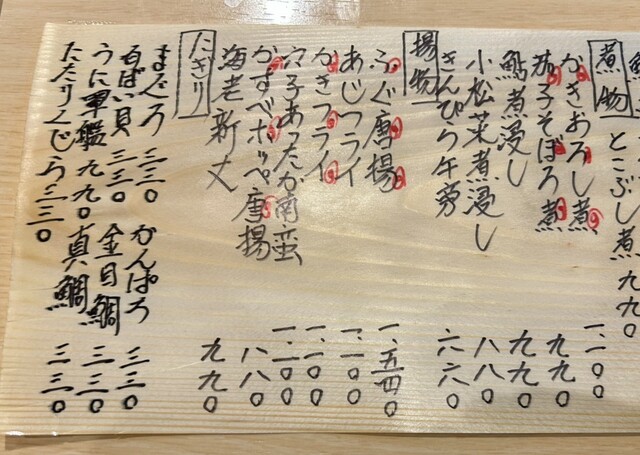 とこぶし煮 九九〇
煮物
かきおろし煮 一、一〇〇
茄子そぼろ煮 九九〇
鮎煮浸し 九九〇
小松菜煮浸し 八八〇
きんぴら午旁 六六〇
揚物
ふぐ唐揚 一、五四〇
あじフライ 一、一〇〇
かきフライ 一、一〇〇
穴子あったか南蛮 一、一〇〇
かすべホッペ唐揚 八八〇
海老新丈 九九〇
にぎり
まぐろ 三三〇 かんぱち 三三〇
白ばい貝 三三〇 金目鯛 三三〇
うに軍艦 九九〇 真鯛 三三〇
たたきくじら 三三〇